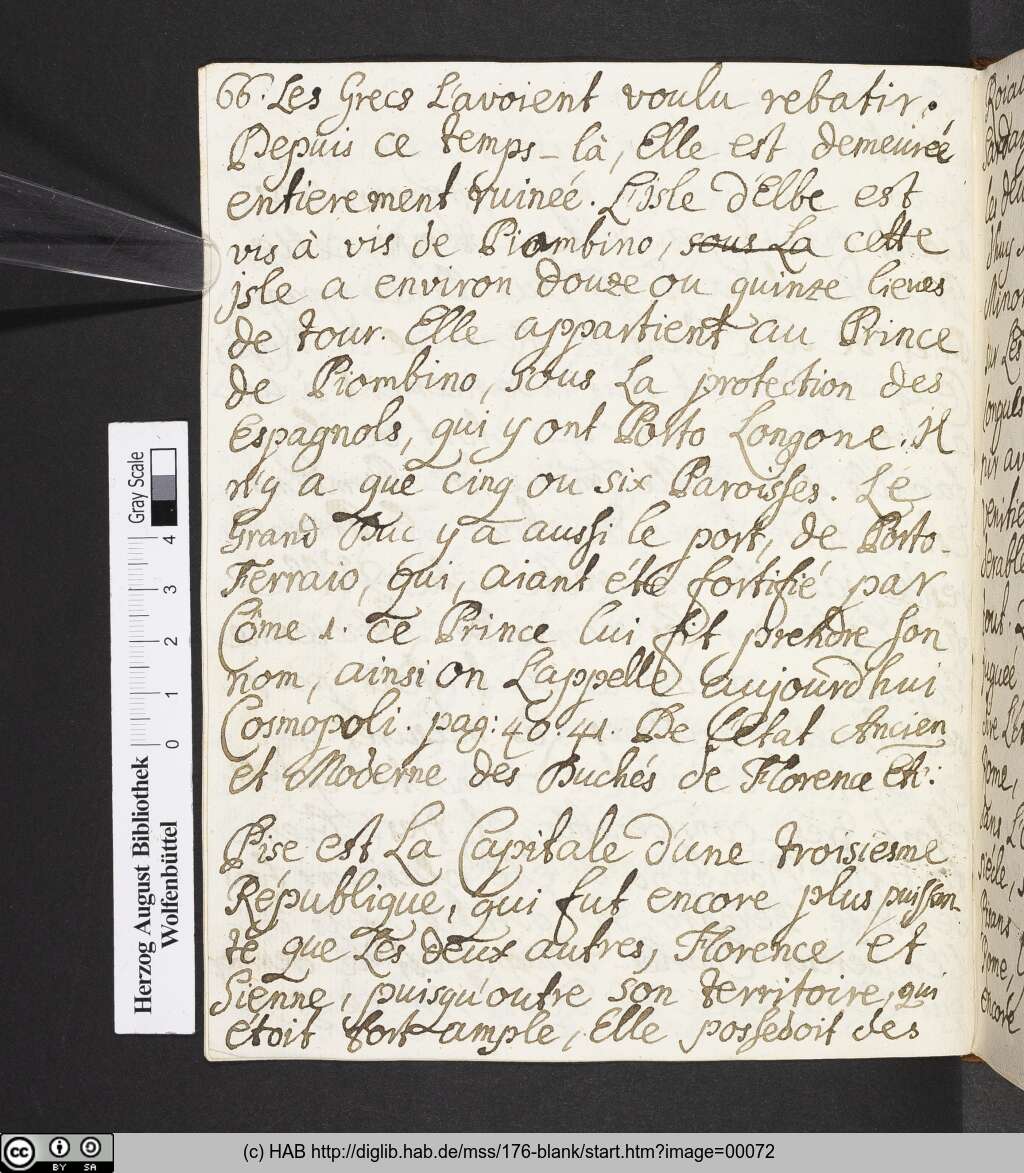 66. Les Grecs L'avoient voulu rebatir.
Depuis ce temps-là, Elle est demeureé
entierement ruineé. L'Isle d'Elbe est
vis à vis de Piombino, sous La cette
jsle a environ douze ou quinze lieues
de tour. Elle appartient au Prince
de Piombino, sous La protection des
Espagnols, qui y ont Porto Longone. Il
n'y a que cinq ou six Paroisses. Le
Grand Duc y a aussi le port, de Porto-
Ferraio, qui, aiant été fortifié par
Côme 1. ce Prince lui fit prendre son
nom, ainsi on L'appelle aujourd'hui
Cosmopoli. pag: 40. 41. De l'etat Ancien
et Moderne des Duchés de Florence Etc:
Pise est La Capitale d'une troisiesme
République, qui fut encore plus puissan-
te que Les deux autres, Florence et
Sienne, puisqu'outre son territoire, qui
etoit fort ample, Elle possedoit des
Gray Scale
4
3
2
1
0
Herzog August Bibliothek
Wolfenbüttel
cc BY SA
(c) HAB http://diglib.hab.de/mss/176-blank/start.htm?image=00072